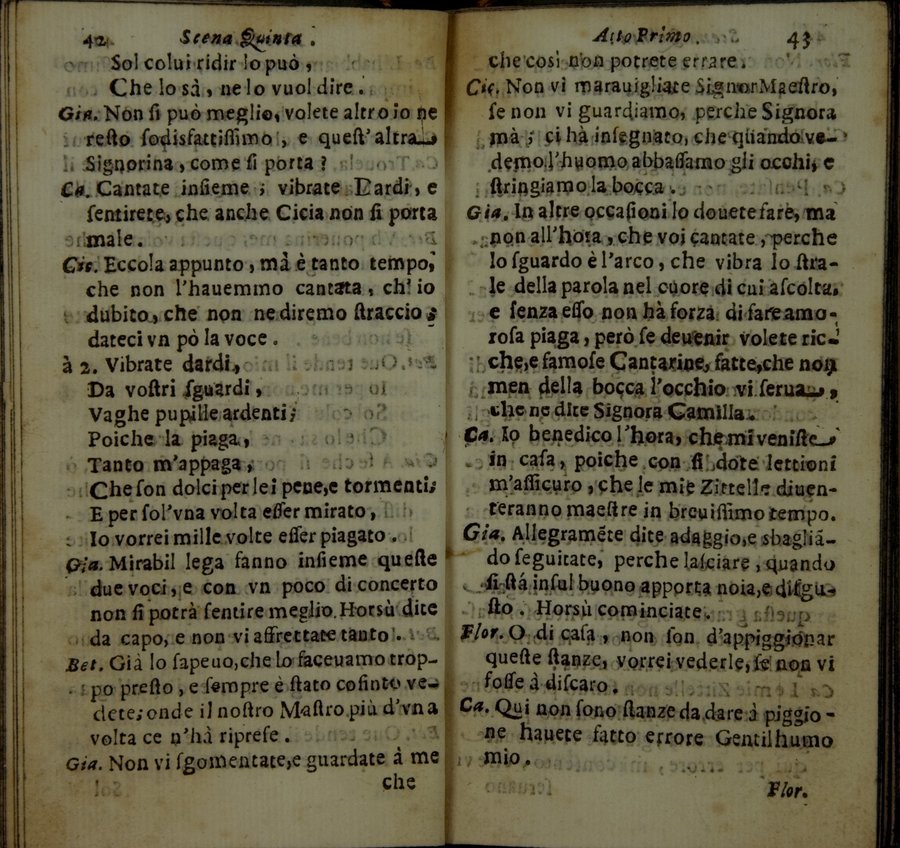 42 Scena Quinta .
Sol colui ridir lo può ,
Che lo sà , ne lo vuol dire .
Gia. Non ſi può meglio, volete altro io ne
reſto ſodisfattiſſimo , e queſt'altra
Signorina , come ſi porta ?
Ca. Cantate inſieme ; vibrate Dardi , e
ſentirete, che anche Cicia non ſi porta
male .
Cic. Eccola appunto , mà è tanto tempo,
che non l'hauemmo cantata , ch' io
dubito, che non ne diremo ſtraccio ;
dateci vn pò la voce .
à 2. Vibrate dardi ,
Da voſtri ſguardi ,
Vaghe pupille ardenti ;
Poiche la piaga ,
Tanto m'appaga ,
Che ſon dolci per lei pene, e tormenti;
E per ſol' vna volta eſſer mirato ,
Io vorrei mille volte eſſer piagato .
Gia. Mirabil lega fanno inſieme queſte
due voci , e con vn poco di concerto
non ſi potrà ſentire meglio. Horsù dite
da capo, e non vi affrettate tanto .
Bet. Già lo ſapeuo, che lo faceuamo trop-
po preſto , e ſempre è ſtato coſinto ve-
dete; onde il noſtro Maſtro più d'vna
volta ce n'hà ripreſe .
Gia. Non vi ſgomentate, e guardate à me
che
Atto Primo . 43
che così non potrete errare .
Cic. Non vi marauigliate Signor Maeſtro,
ſe non vi guardiamo, perche Signora
mà ; ci hà inſegnato, che quando ve-
demo l'huomo abbaſſamo gli occhi, e
ſtringiamo la bocca .
Gia. In altre occaſioni lo douete fare, ma
non all'hora , che voi cantate , perche
lo ſguardo è l'arco , che vibra lo ſtra-
le della parola nel cuore di cui aſcolta,
e ſenza eſſo non hà forza di fare amo-
roſa piaga , però ſe deuenir volete ric-
che, e famoſe Cantarine, fatte, che non
men della bocca l'occhio vi ſerua ,
che ne dite Signora Camilla .
Ca. Io benedico l'hora, che mi veniſte
in caſa , poiche con ſi dote lettioni
m'aſſicuro , che le mie Zittelle diuen-
teranno maeſtre in breuiſſimo tempo.
Gia. Allegramẽte dite adaggio, e sbagliã-
do ſeguitate, perche laſciare , quando
ſi ſtá inſul buono apporta noia, e diſgu-
ſto . Horsù cominciate .
Flor. O di caſa , non ſon d'appiggionar
queſte ſtanze, vorrei vederle, ſe non vi
foſſe à diſcaro .
Ca. Qui non ſono ſtanze da dare à piggio-
ne hauete fatto errore Gentilhumo
mio .
Flor.